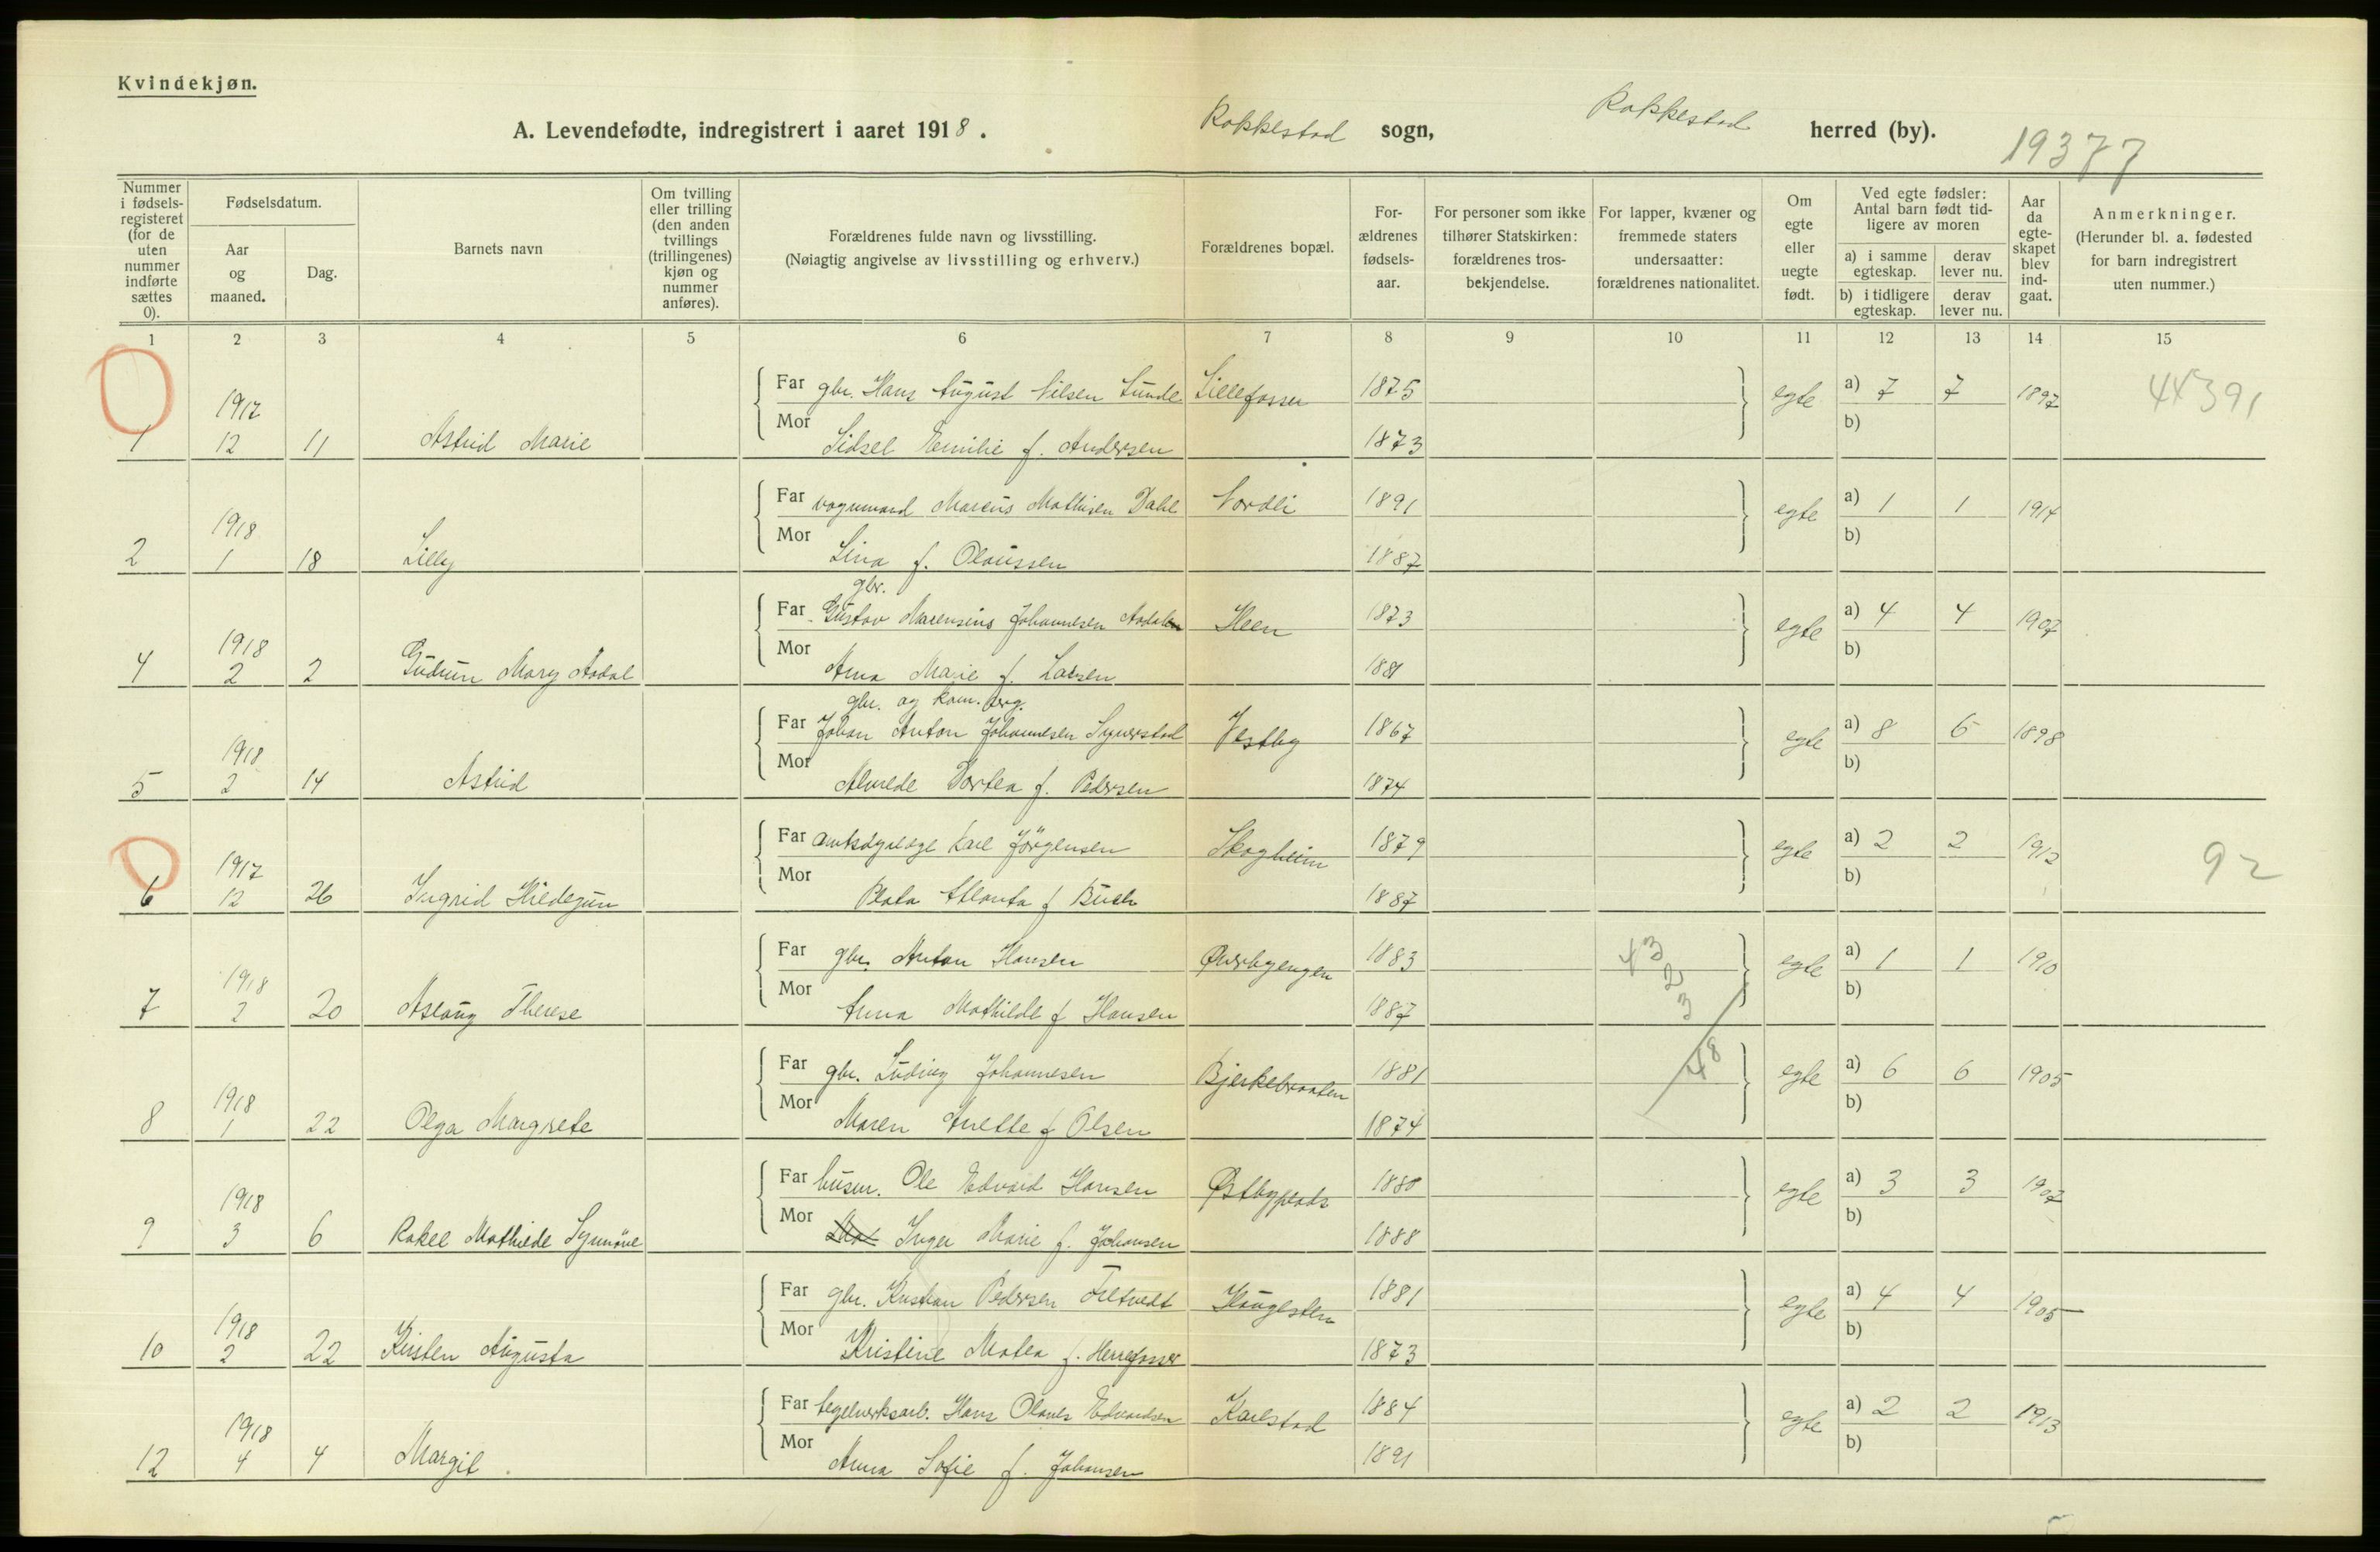 Kvindekjøn.
A. Levendefødte, indregistrert i aaret 1918.
Rakkestad sogn,
Rakkestad herred (by).
19377
Nummer i fødsels-registeret (for de uten nummer indførte sættes 0).
Fødselsdatum.
Aar og maaned.
Dag.
Barnets navn
Om tvilling eller trilling (den anden tvillings (trillingenes) kjøn og nummer anføres).
Forældrenes fulde navn og livsstilling.
(Nøiagtig angivelse av livsstilling og erhverv.)
Forældrenes bopæl.
For-ældrenes fødsels-aar.
For personer som ikke tilhører Statskirken: forældrenes tros-bekjendelse.
For lapper, kvæner og fremmede staters undersaatter: forældrenes nationalitet.
Om egte eller uegte født.
Ved egte fødsler: Antal barn født tid-ligere av moren
a) i samme egteskap.
derav lever nu.
b) i tidligere egteskap.
derav lever nu.
Aar da egte-skapet blev ind-gaat.
Anmerkninger.
(Herunder bl. a. fødested for barn indregistrert uten nummer.)
1 2 3 4 5 6 7 8 9 10 11 12 13 14 15
1917 Far gbr. Hans August Nilsen Lunde Lillefosser 1875 egte a) 7 7 1897 44391
1 12 11 Astrid Marie Mor Sidsel Emilie f. Andersen 1873 b)
1918 Far vognmand Marcus Mathisen Dahl Nordli 1891 egte a) 1 1 1914
2 1 18 Lilly Mor Lina f. Olaussen 1887 b)
gbr.
1918 Far Gustav Marensius Johannesen Aadalen Heen 1873 egte a) 4 4 1907
4 2 2 Gudrun Mary Aadal Mor Anna Marie f. Larsen 1881 b)
gbr. og
1918 Far Johan Anton Johannesen Vestby 1867 egte a) 8 6 1898
5 2 14 Astrid Mor Dortea f. Pedersen 1874 b)
1917 Far amtsdyrlæge Karl Jörgensen Skogheim 1879 egte a) 2 2 1912 92
6 12 26 Ingrid Hildegun Mor f Buch 1887 b)
1918 Far gbr. Anton Hansen 1883 43 egte a) 1 1 1910
2
7 2 20 Aslaug Therese Mor Anna Mathilde f Hansen 1887 3 b)
1918 Far gbr. Ludvig Johannesen Bjerkebraaten 1881 48 egte a) 6 6 1905
8 1 22 Olga Margrete Mor Maren Anette f Olsen 1874 b)
1918 Far husm. Ole Edvard Hansen Østbyplads 1880 egte a) 3 3 1907
9 3 6 Rakel Mathilde Synnöve Mor Inger Marie f. Johansen 1888 b)
1918 Far gbr. Kristian Pedersen Haugesten 1881 egte a) 4 4 1905
10 2 22 Kirsten Augusta Mor Kristine Matea f. Herrefosser 1873 b)
1918 Far teglverksarb. Hans Olaves Edvardsen Karlstad 1884 egte a) 2 2 1913
12 4 4 Margit. Mor Anna Sofie f. Johansen 1891 b)